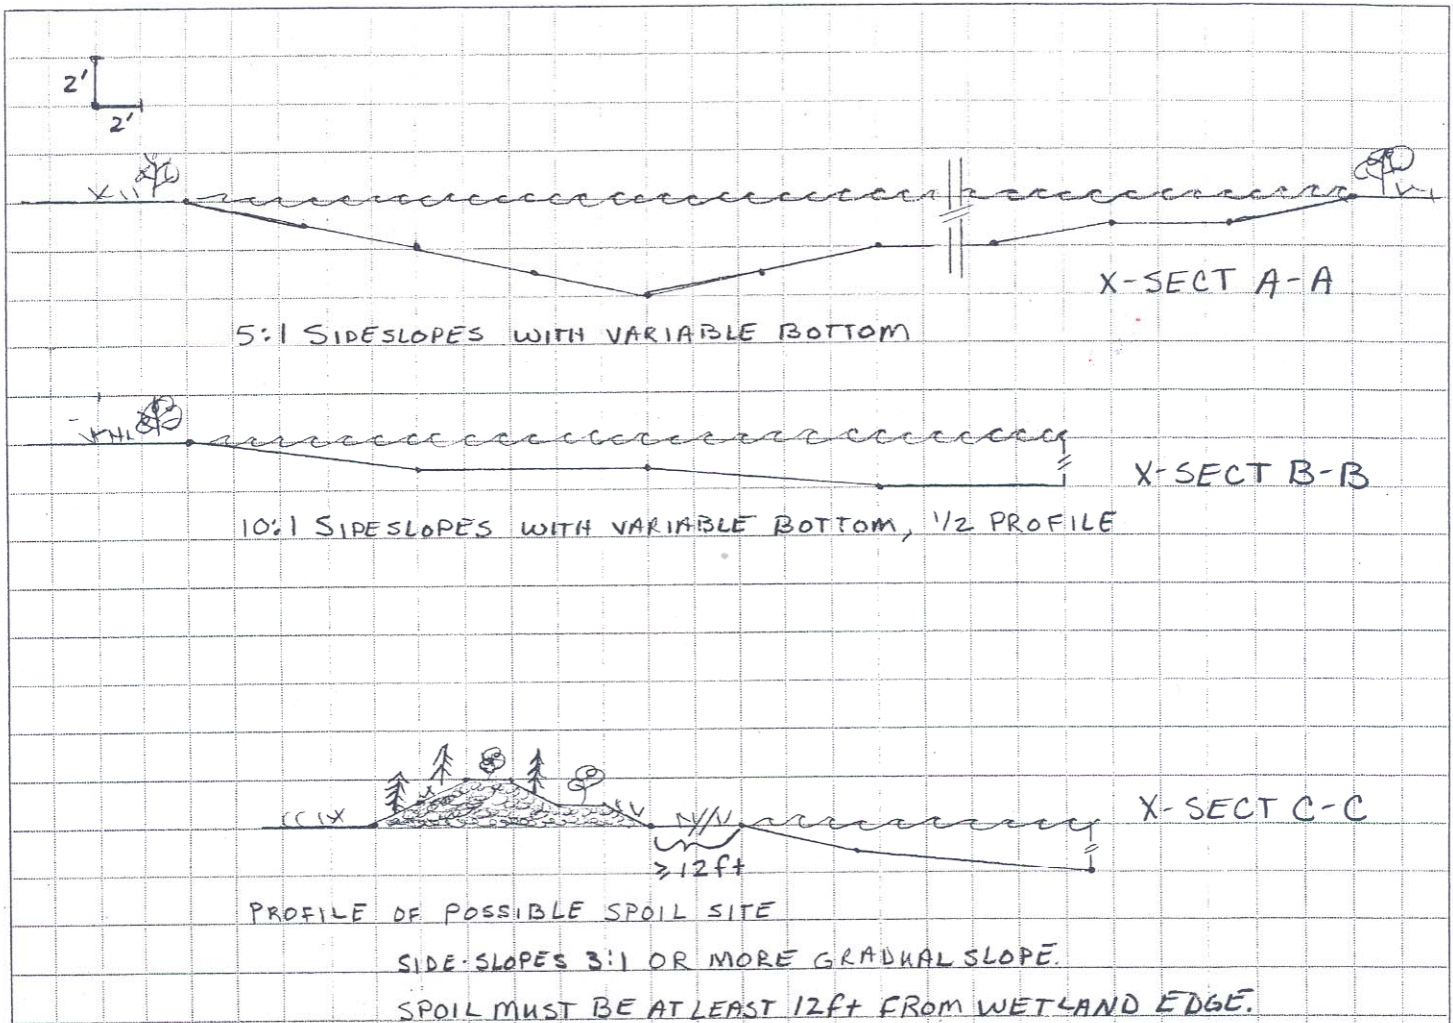 2'
2'
X-SECT A-A
5:1 SIDESLOPES WITH VARIABLE BOTTOM
X-SECT B-B
10:1 SIDESLOPES WITH VARIABLE BOTTOM, 1/2 PROFILE
X-SECT C-C
≥12ft
PROFILE OF POSSIBLE SPOIL SITE
SIDE-SLOPES 3:1 OR MORE GRADUAL SLOPE.
SPOIL MUST BE AT LEAST 12ft FROM WETLAND EDGE.